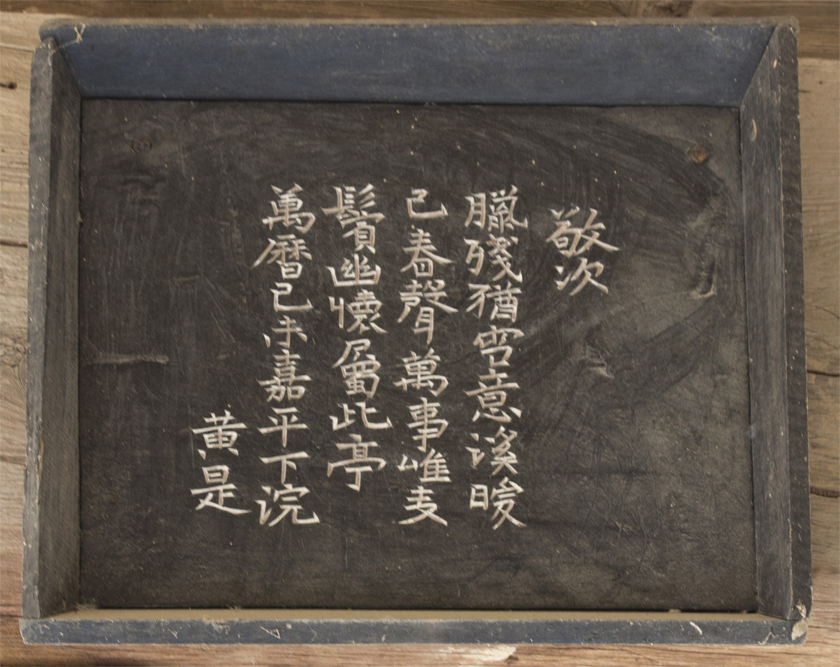 敬次
臘殘猶雪意溪暖
已春聲萬事唯
鬢幽懷屬此亭
萬曆己未嘉平下浣
黄是